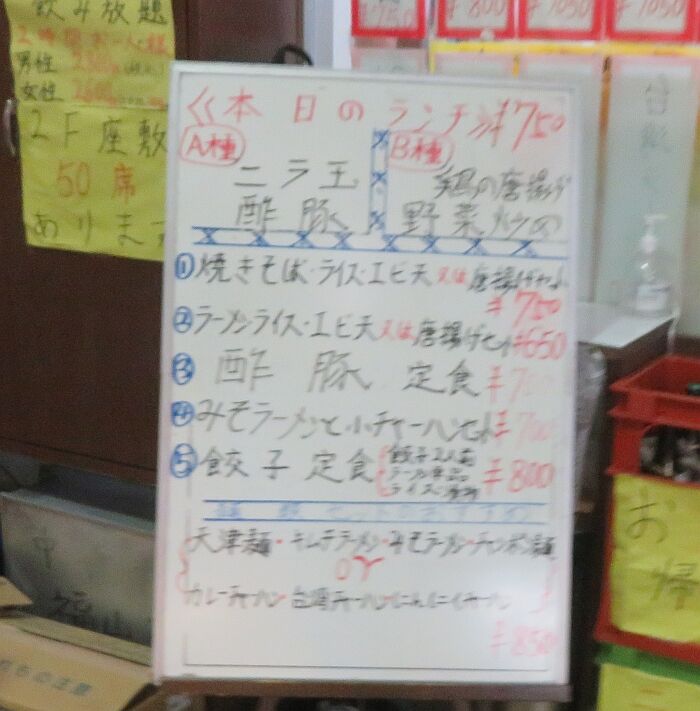 飲み放題
2時間お一人様
男性
女性
2F座敷
50席
あります
¥750
¥800
¥1050
¥1050
≪本日のランチ¥750
A種
B種
ニラ玉
酢豚
鶏の唐揚げ
野菜炒め
①焼きそば・ライス・エビ天又は唐揚げセット
¥750
②ラーメン・ライス・エビ天又は唐揚げセット¥650
③酢豚 定食 ¥700
④みそラーメンと小チャーハンセット¥700
⑤餃子定食
餃子2人前
ライス
¥800
天津麺・キムチラーメン・みそラーメン・チャンポン麺
or
カレーチャーハン 台湾チャーハン にんにくチャーハン
¥850
お
帰